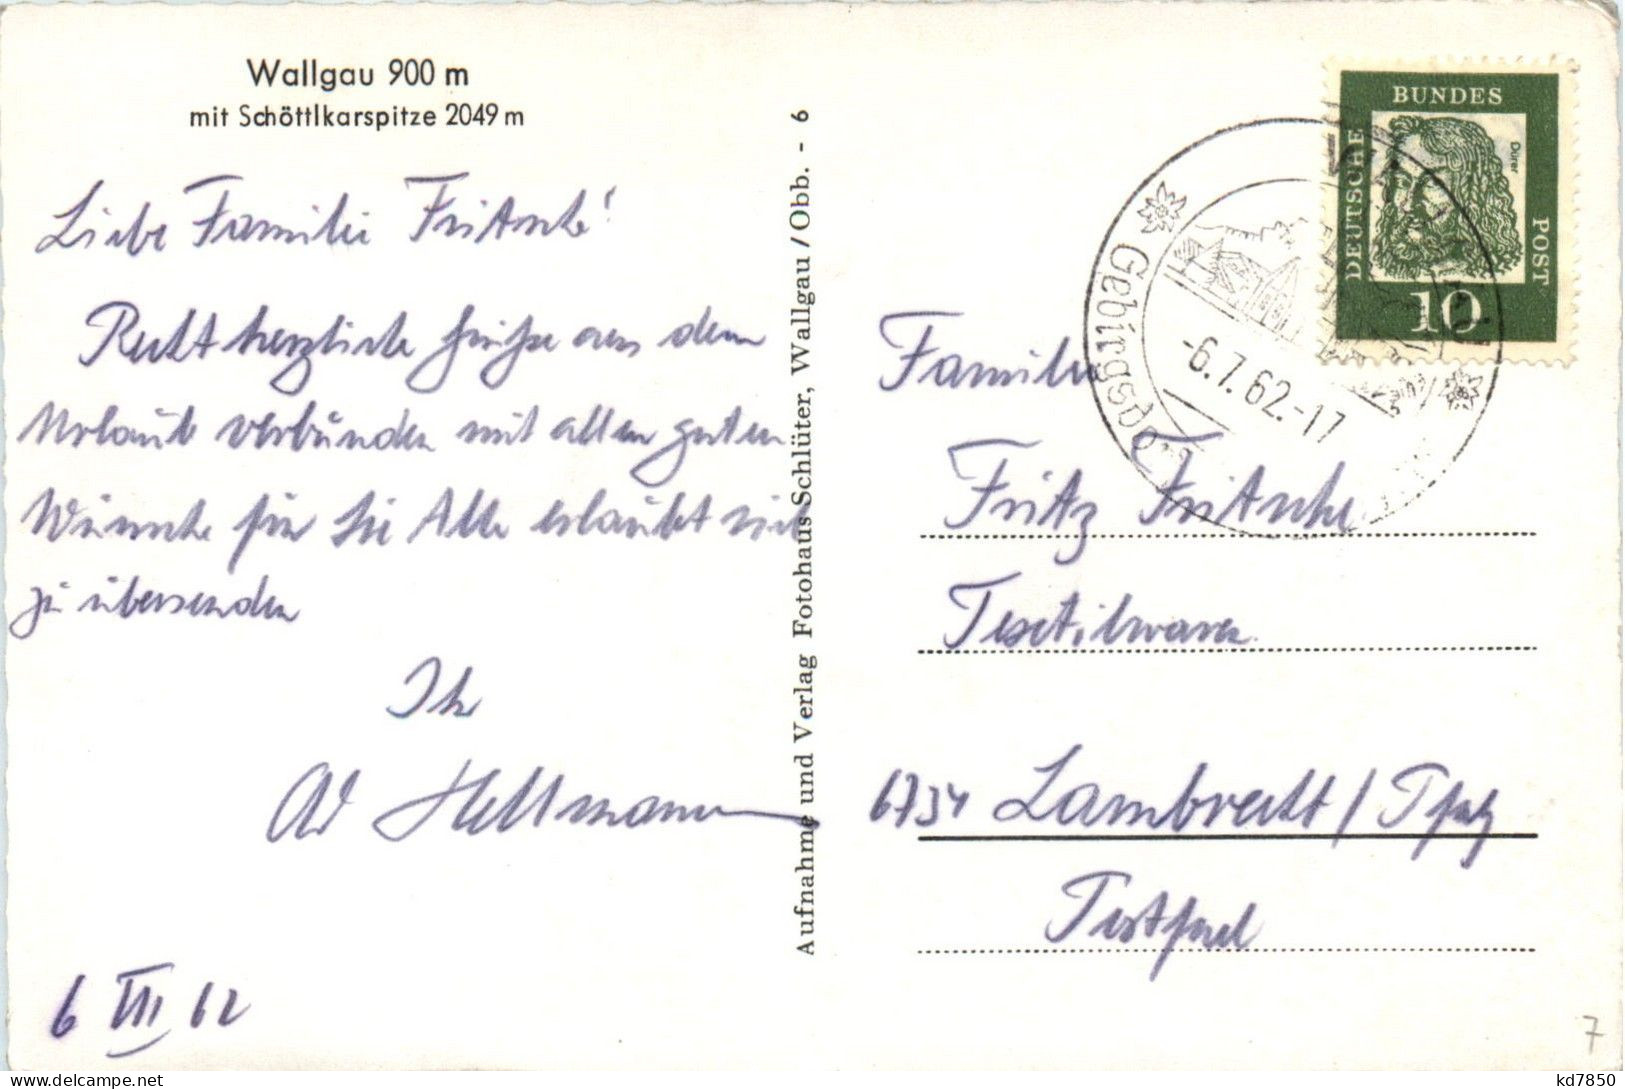 Wallgau 900 m
mit Schöttlkarspitze 2049 m
Liebe Familie Fritsche!
Recht herzliche Grüße aus dem
Urlaub verbunden mit allen guten
Wünsche für Sie Alle erlaubt sich
zu übersenden
Ihr
Hellmann
6 VII 62
Aufnahme und Verlag Fotohaus Schlüter, Wallgau/Obb. - 6
DEUTSCHE
BUNDES
POST
Dürer
10
Gebirgsdorf
-6.7.62.-17
Familie
Fritz Fritsche
Textilwaren
6734 Lambrecht/Pfalz
Postfach
7
kd7850